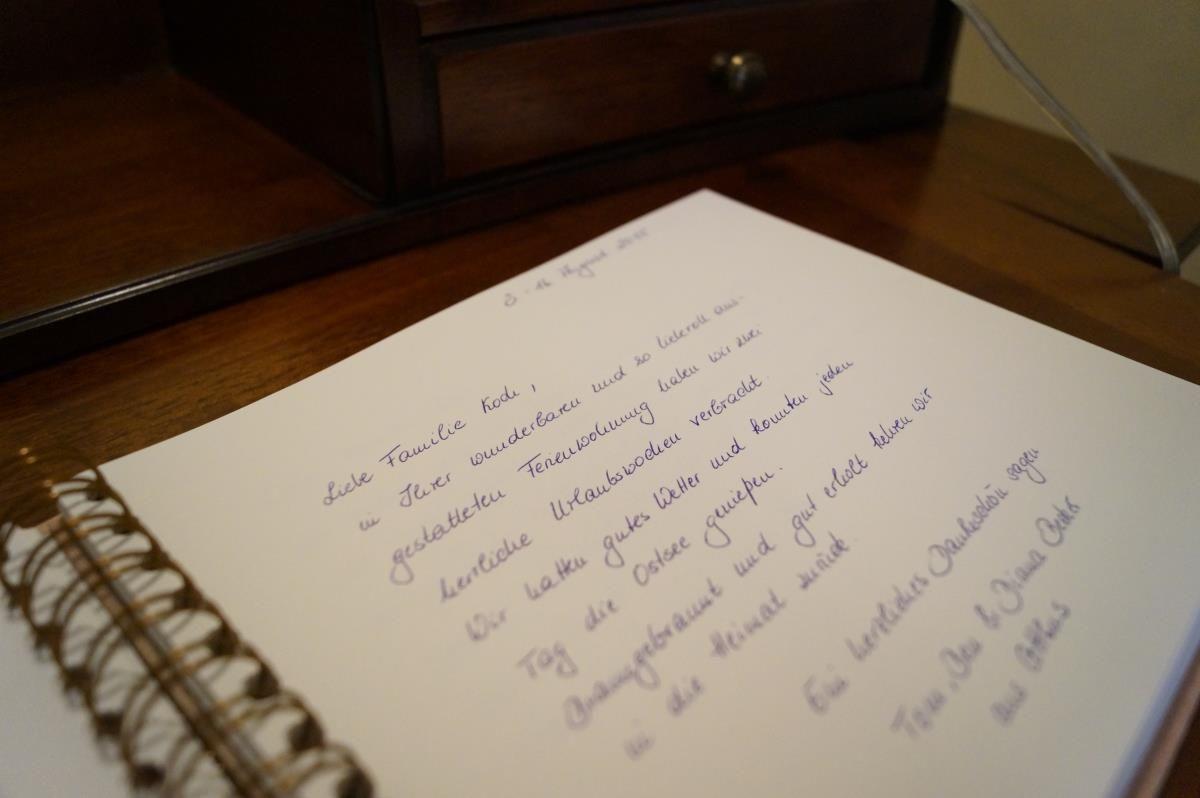 - 16. August 2015
Liebe Familie Koch,
in Ihrer wunderbaren und so liebevoll aus-
gestatteten Ferienwohnung haben wir zwei
herrliche Urlaubswochen verbracht.
Wir hatten gutes Wetter und konnten jeden
Tag die Ostsee genießen.
Braungebrannt und gut erholt kehren wir
in die Heimat zurück.
Ein herzliches Dankeschön sagen
Tom, Ben & Diana
aus Cottbus